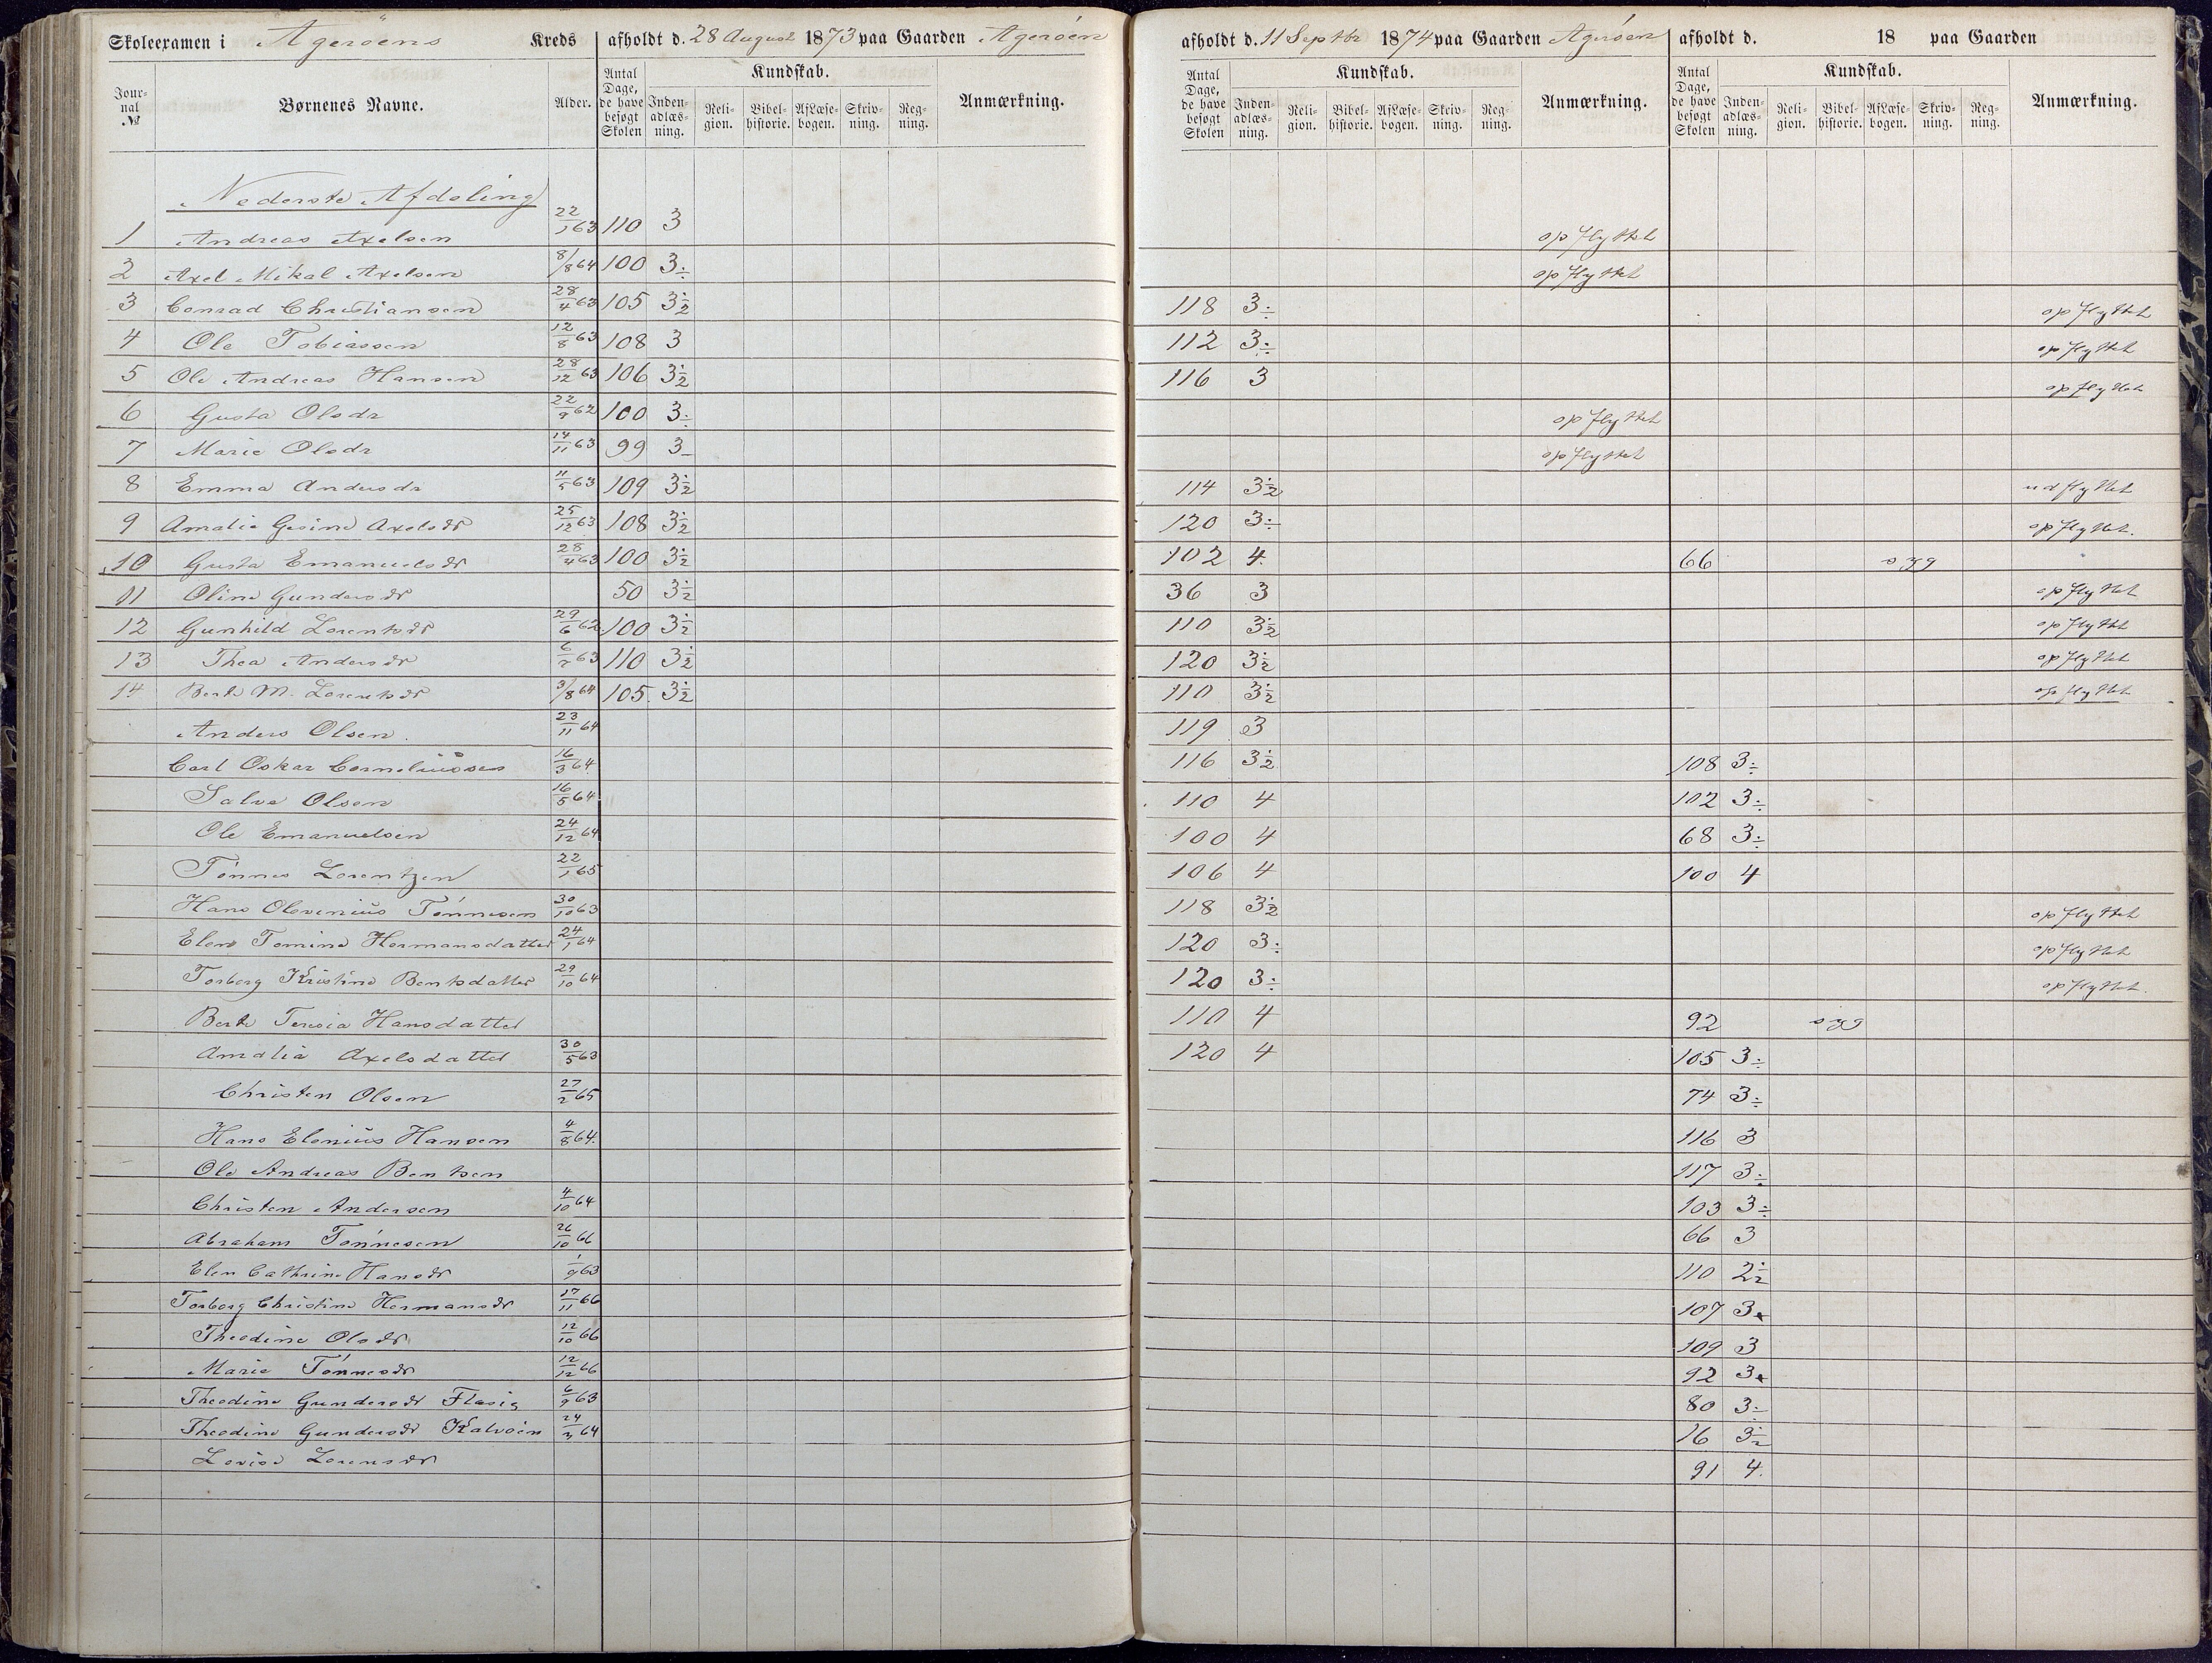 Skoleexamen i Ageröens Kreds afholdt d. 28 August 1873 paa Gaarden Ageröen afholdt d. 11 Septbr 1874 paa Gaarden Ageröen afholdt d. 18 paa Gaarden
Jour-nal № Børnenes Navne. Alder. Antal Dage, de have besøgt Skolen Kundskab. Inden-adlæs-ning. Reli-gion. Bibel-historie. AfLæse-bogen. Skriv-ning. Reg-ning. Anmærkning. Antal Dage, de have besøgt Skolen Kundskab. Inden-adlæs-ning. Reli-gion. Bibel-historie. AfLæse-bogen. Skriv-ning. Reg-ning. Anmærkning. Antal Dage, de have besøgt Skolen Kundskab. Inden-adlæs-ning. Reli-gion. Bibel-historie. AfLæse-bogen. Skriv-ning. Reg-ning. Anmærkning.
Nederste Afdeling
1 Andreas Axelsen 22/1 63 110 3 opflyttet
2 Axel Mikal Axelsen 8/8 64 100 3÷ opflyttet
3 Conrad Christiansen 28/4 63 105 3½ 118 3÷ opflyttet
4 Ole Tobiassen 12/8 63 108 3 112 3÷ opflyttet
5 Ole Andreas Hansen 28/12 63 106 3½ 116 3 opflyttet
6 Gusta Olsdr 22/9 62 100 3÷ opflyttet
7 Marie Olsdr 14/11 63 99 3- opflyttet
8 Emma Andersdr 11/5 63 109 3½ 114 3½ udflyttet
9 Amalie Gesine Axelsdr 25/12 63 108 3½ 120 3÷ opflyttet.
10 Gusta Emanuelsdr 28/4 63 100 3½ 102 4. 66 syg
11 Oline Gundersdr 50 3½ 36 3 opflyttet
12 Gunhild Lorentsdr 29/6 62 100 3½ 110 3½ opflyttet
13 Thea Andersdr 6/7 63 110 3½ 120 3½ opflyttet
14 Berte M. Lorentsdr 3/8 64 105. 3½ 110 3½ opflyttet
Anders Olsen. 23/11 64 119 3
Carl Oskar Corneliussen 16/3 64 116 3½ 108 3÷
Salve Olsen 16/5 64 110 4 102 3÷
Ole Emanuelsen 24/12 64 100 4 68 3÷
Tönnes Lorentzen 22/1 65 106 4 100 4
Hans Olevenius Tönnesen 30/10 63 118 3½ opflyttet
Elene Tomine Hermansdatter 24/1 64 120 3÷ opflyttet
Torborg Kristine Bentsdatter 29/10 64 120 3÷ opflyttet.
Berte Teresia Hansdatter 110 4 92 syg
Amalia Axelsdatter 30/5 63 120 4 105 3÷
Christen Olsen 27/2 65 74 3÷
Hans Elenius Hansen 4/8 64. 116 3
Ole Andreas Bentsen 117 3÷
Christen Andersen 4/10 64 103 3÷
Abraham Tönnesen 26/10 66 66 3
Elen Cathrine Hansdr 1/9 63 110 2½
Torborg Christine Hermansdr 17/11 66 107 3
Theodine Olsdr 12/10 66 109 3
Marie Tönnesdr 12/12 66 92 3
Theodine Gundersdr 6/9 63 80 3÷
Theodine Gundersdr Kalvöen 24/3 64 76 3½
Lovise Lorensdr 91 4.